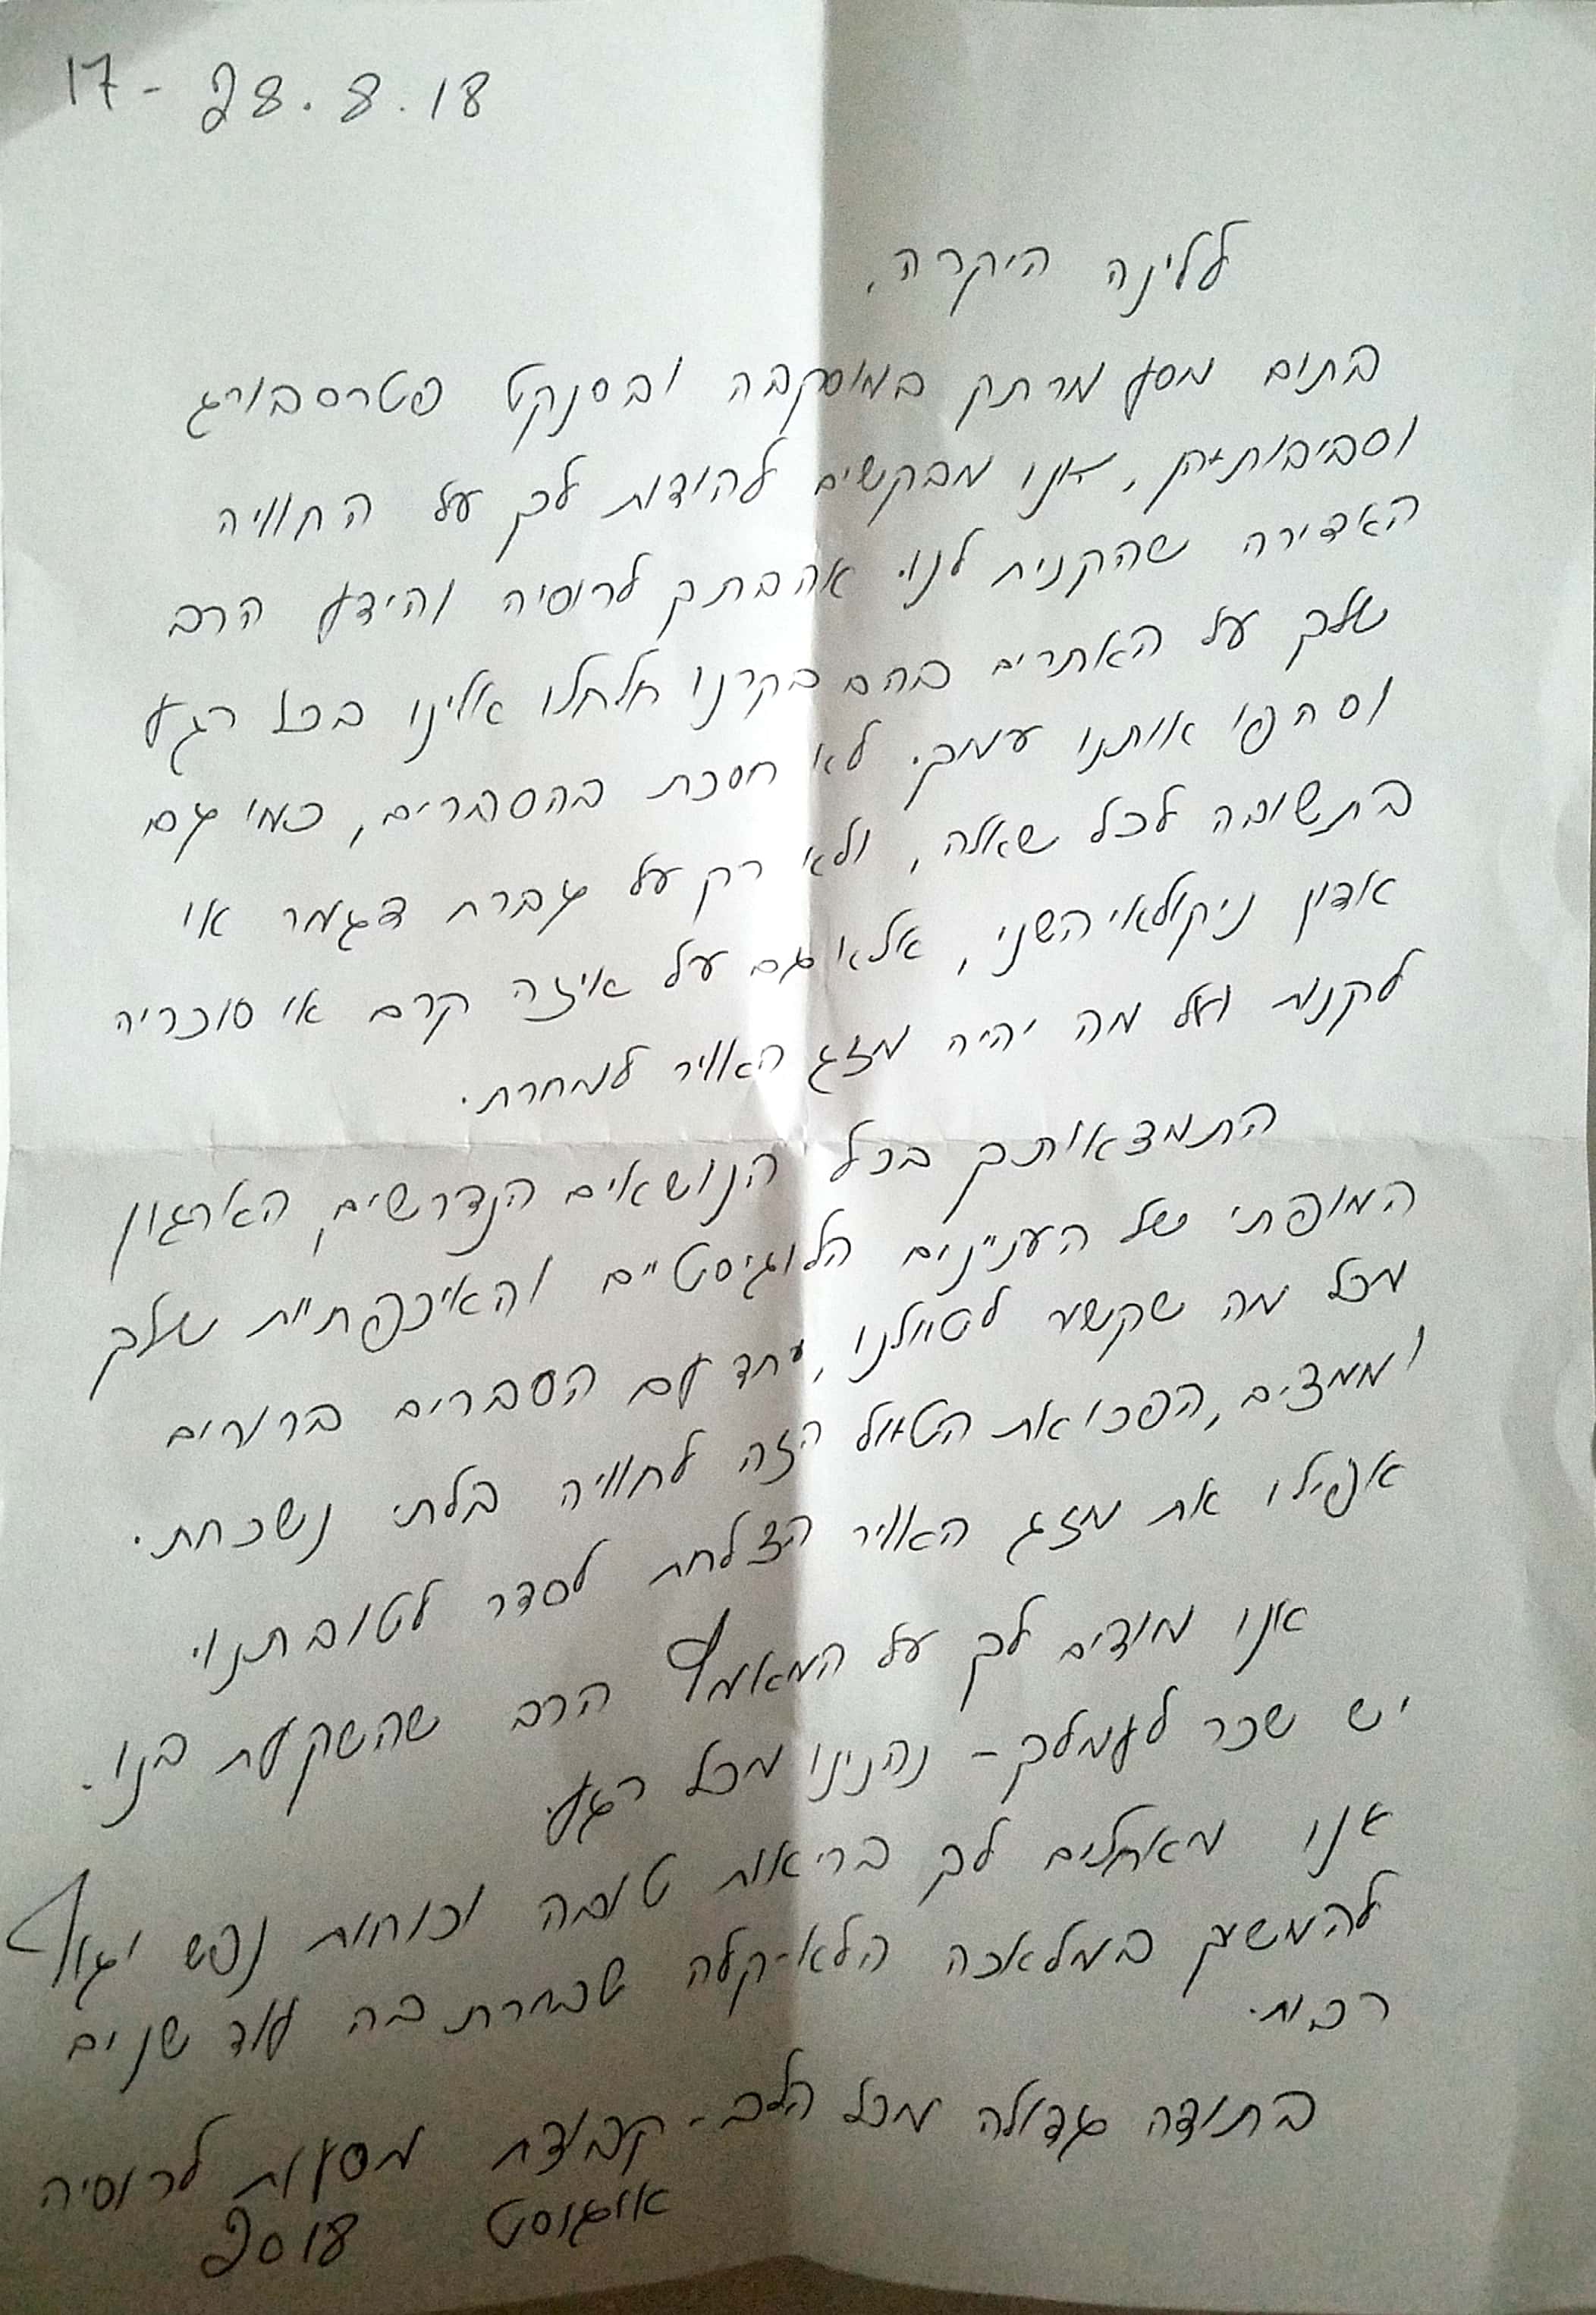 17 - 28.8.18
ללינה היקרה,
בתום מסע מרתק במוסקבה ובסנקט פטרסבורג
וסביבותיהן, אנו מבקשים להודות לך על החוויה
האדירה שהקנית לנו. אהבתך לרוסיה והידע הרב
שלך על האתרים בהם בקרנו חלחלו אלינו בכל רגע
וסחפו אותנו עמך. לא חסכת בהסברים, כמו גם
בתשובה לכל שאלה, ולא רק על גברת דגמר או
אדון ניקולאי השני, אלא גם על איזה קרם או סוכריה
לקנות ועל מה יהיה מזג האוויר למחרת.
התמצאותך בכל הנושאים הנדרשים, הארגון
המופתי של העניינים הלוגיסטיים והאיכפתיות שלך
מכל מה שקשור לטיולנו, יחד עם הסברים ברורים
וממצים, הפכו את הטיול הזה לחוויה בלתי נשכחת.
אפילו את מזג האוויר הצלחת לסדר לטובתנו.
אנו מודים לך על המאמץ הרב שהשקעת בנו.
יש שכר לעמלך - נהנינו מכל רגע.
אנו מאחלים לך בריאות טובה וכוחות נפש וגוף
להמשיך במלאכה הלא-קלה שבחרת בה עוד שנים
רבות.
בתודה גדולה מכל הלב - קבוצת מסעות לרוסיה
אוגוסט 2018